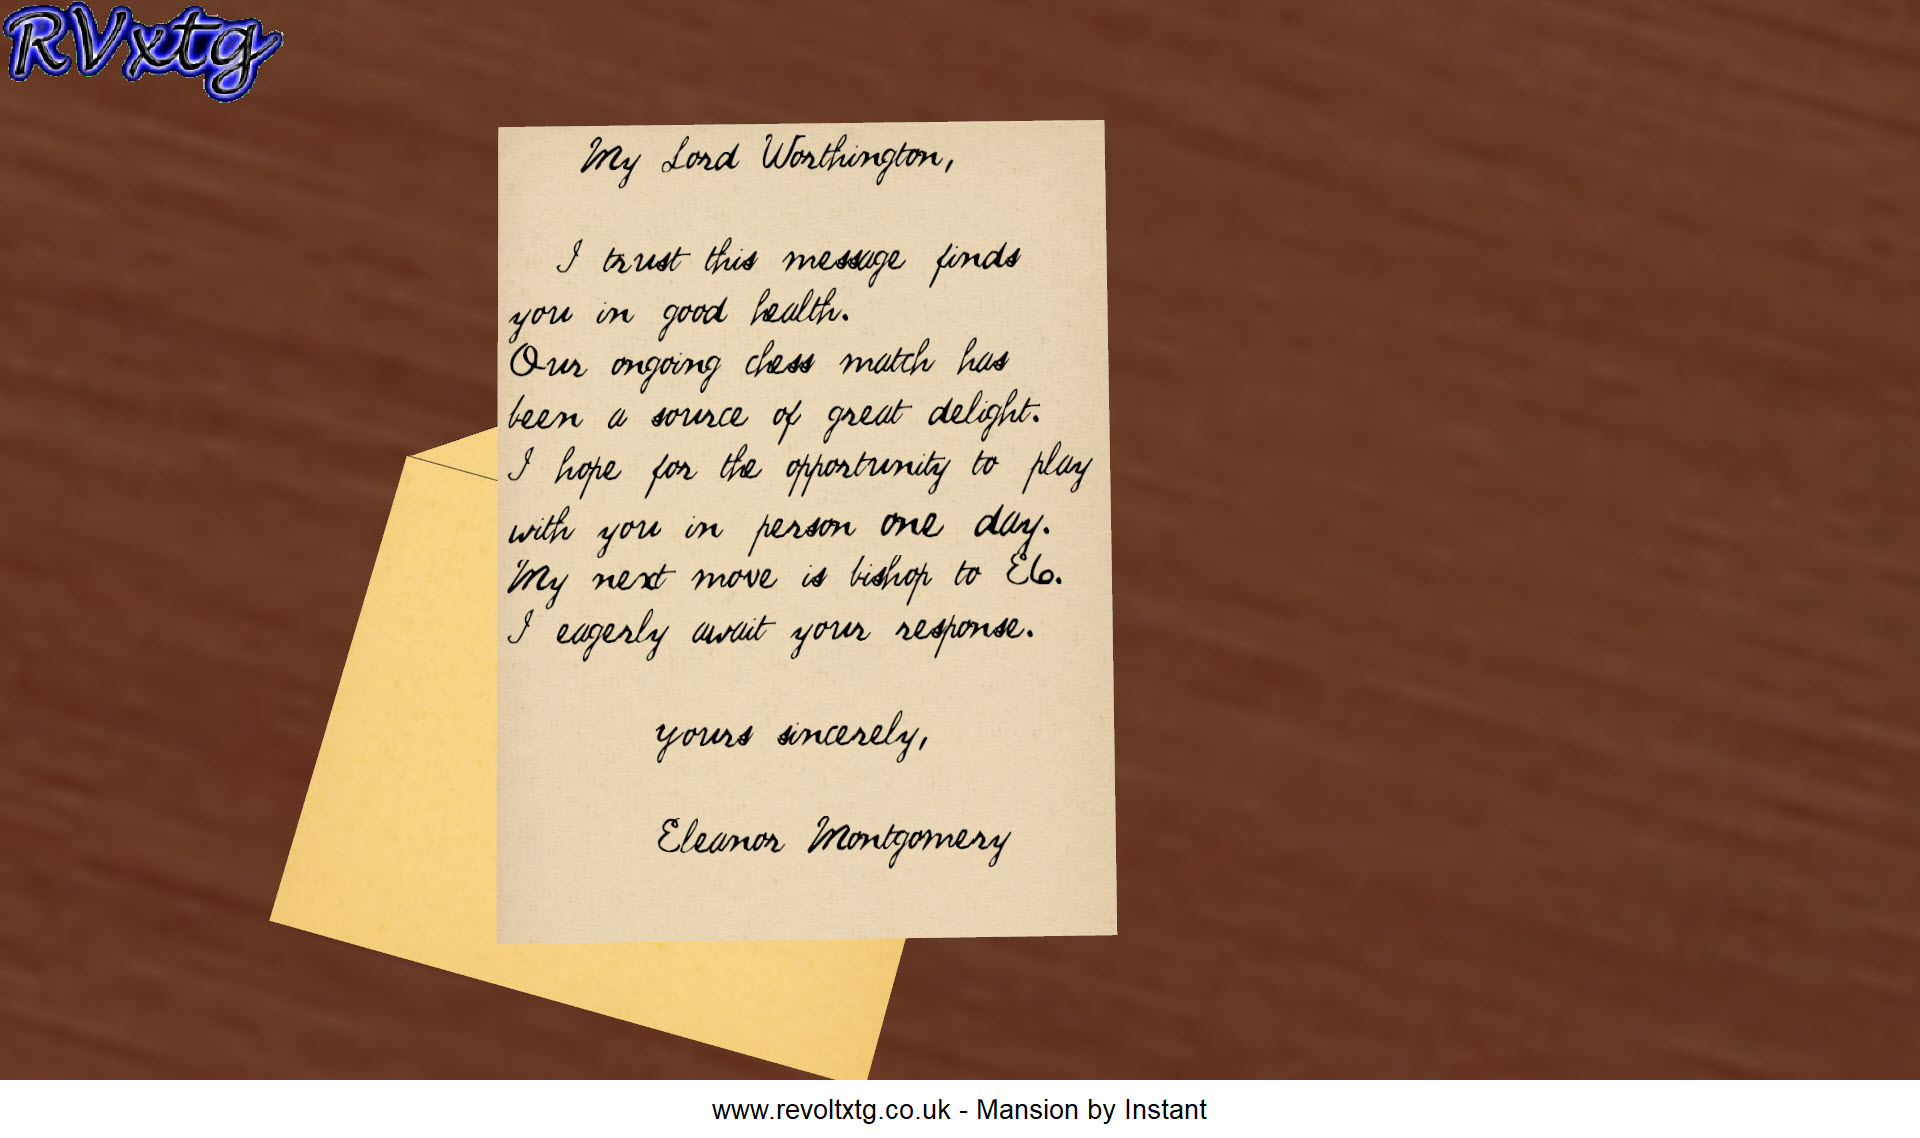 RVxtg
My Lord Worthington,
I trust this message finds
you in good health.
Our ongoing chess match has
been a source of great delight.
I hope for the opportunity to play
with you in person one day.
My next move is bishop to E6.
I eagerly await your response.
yours sincerely,
Eleanor Montgomery
www.revoltxtg.co.uk - Mansion by Instant